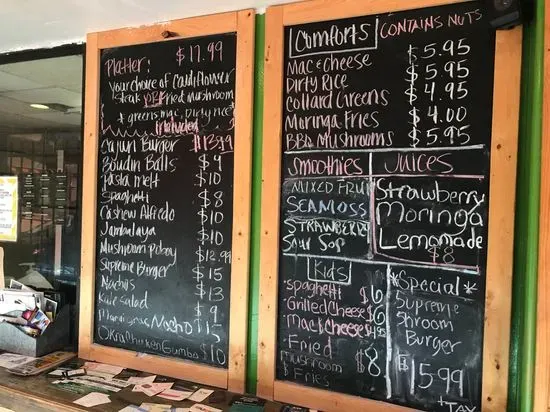 Platter: $17.99
your choice of Cauliflower
Steak OR Fried Mushroom
& greens, mac, Dirty rice
Included
Cajun Burger $13.99
Boudin Balls $9
Pasta melt $10
Spaghetti $8
Cashew Alfredo $10
Jambalaya $10
Mushroom Poboy $12.99
Supreme Burger $15
Nachos $13
Kale salad $9
Mardi gras Nacho $15
Okra Chicken Gumbo $10
Comforts CONTAINS NUTS
Mac & cheese $5.95
Dirty Rice $5.95
Collard Greens $4.95
Moringa Fries $4.00
BBQ Mushrooms $5.95
Smoothies
MIXED FRUIT
SEAMOSS
STRAWBERRY
Sour Sop
Juices
Strawberry
Moringa
Lemonade
$8
Kids
Spaghetti $6
Grilled Cheese $6
Mac & Cheese $4.95
Fried $8
Mushroom
& Fries
*Special*
Supreme
Shroom
Burger
$15.99
+TAX